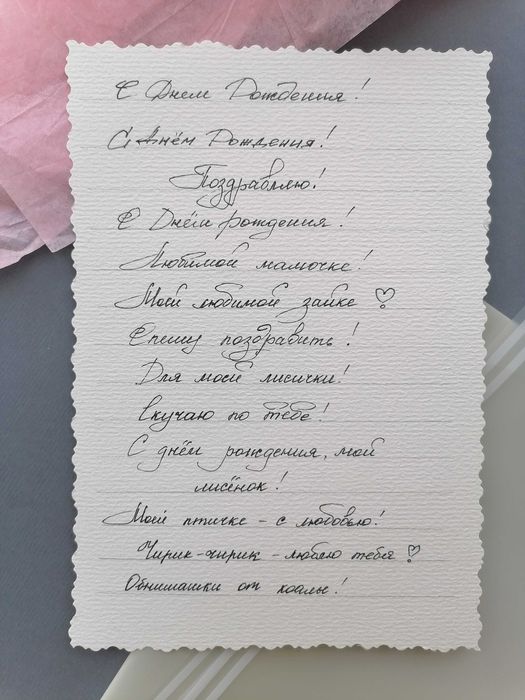 С Днем Рождения!
С Днём Рождения!
Поздравляю!
С Днём рождения!
Любимой мамочке!
Моей любимой зайке
Спешу поздравить!
Для моей лисички!
Скучаю по тебе!
С днём рождения, мой
лисёнок!
Моей птичке - с любовью!
Чирик-чирик - люблю тебя
Обнимашки от коалы!